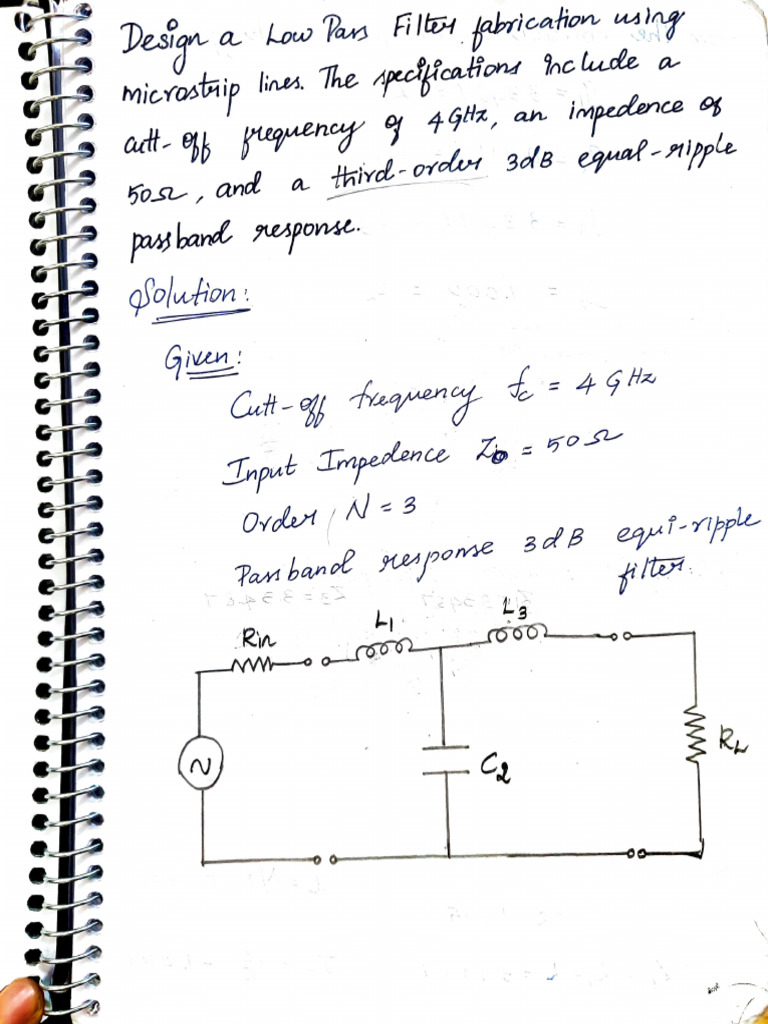 Design a Low Pass Filter fabrication using
microstrip lines. The specifications include a
cutt-off frequency of 4 GHz, an impedence of
50Ω, and a third-order 3dB equal-ripple
passband response.
Solution:
Given:
Cutt-off frequency fc = 4 GHz
Input Impedence Zo = 50Ω
Order, N = 3
Passband response 3dB equi-ripple
filter.
L1
L3
Rin
RL
C2